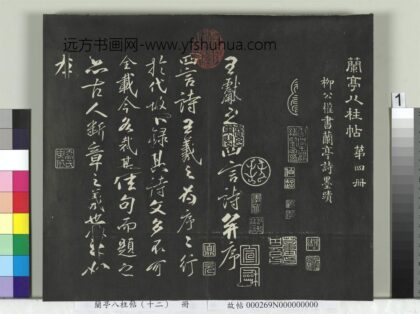 远方书画网-www.yfshuhua.com
蘭亭八柱帖 第四冊
柳公權書蘭亭詩墨蹟
王獻之四言詩并序
四言詩王羲之為序序行
於代故不錄其詩文多不可
全載今各裁其佳句而題之
亦古人斷章之義也
蘭亭八柱帖（十二） 冊
故帖 000269N000000000